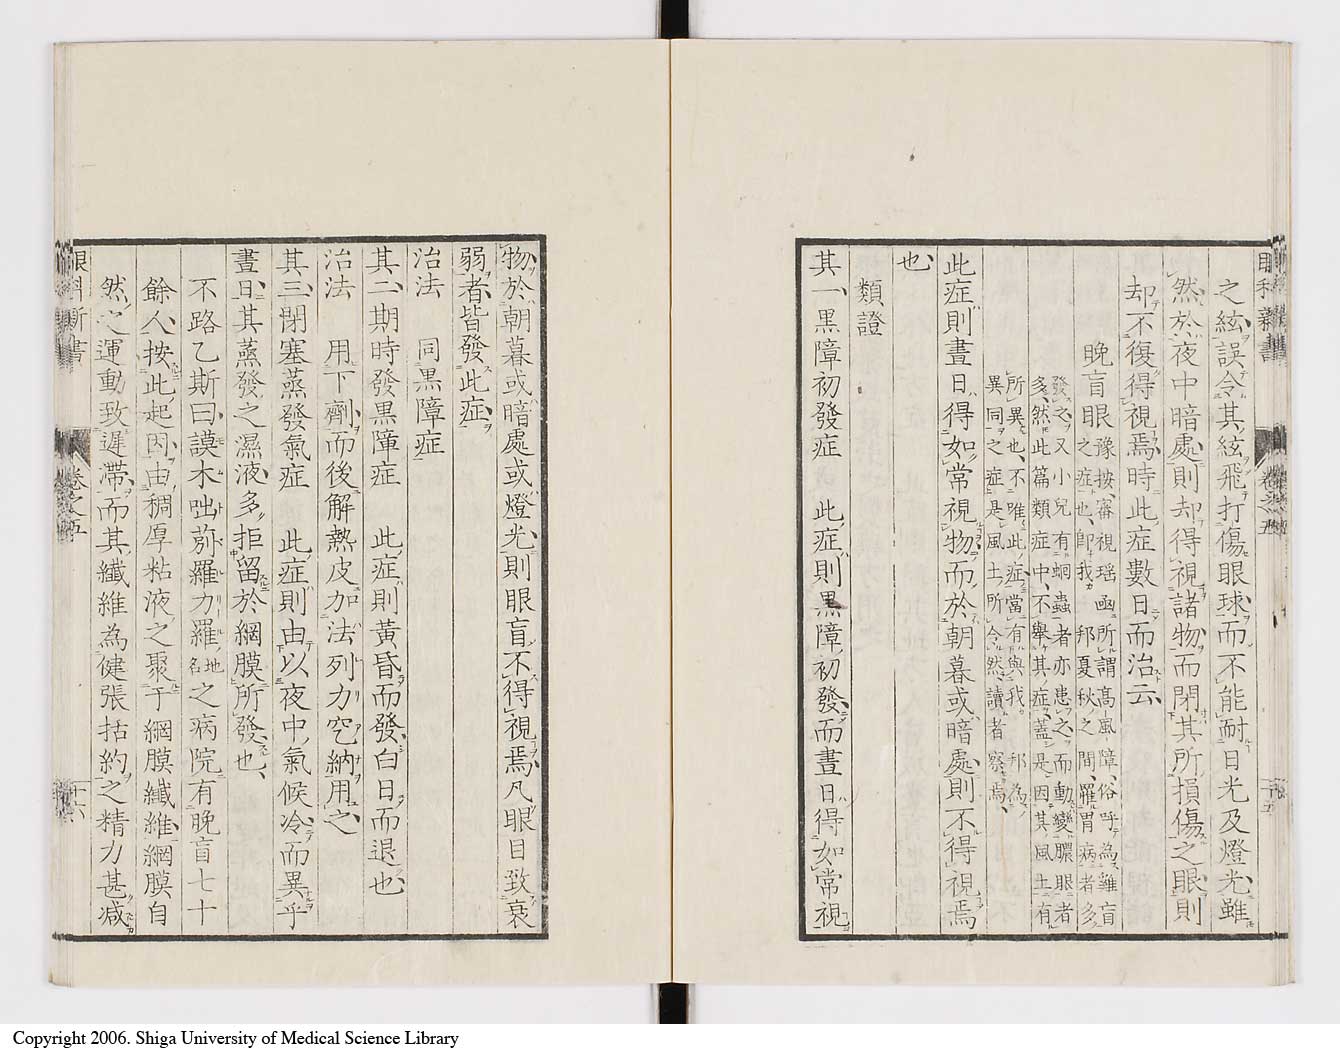 眼科新書 卷之五 十五
之絃誤令其絃飛打傷眼球而不能耐日光及燈光雖
然於夜中暗處則却得視諸物而閉其所損傷之眼則
却不復得視焉時此症數日而治云
晩盲眼 豫按審視瑶函所謂高風障俗呼為雞盲
眼之症也卽我 邦夏秋之間罹胃病者多
發之又小兒有蛔蟲者亦患之而動變膿眼者
多然此篇類症中不擧其症蓋是因其風土有
所異也不唯此症當有與我 邦為
異同之症是風土所令然讀者察焉
此症則晝日得如常視物而於朝暮或暗處則不得視焉
也
類證
其一黒障初發症 此症則黒障初發而晝日得如常視
物於朝暮或暗處或燈光則眼盲不得視焉凡眼目致衰
弱者皆發此症
治法 同黒障症
其二期時發黒障症 此症則黃昏而發白日而退也
治法 用下劑而後解熱皮加法列力空納用之
其三閉塞蒸發氣症 此症則由以夜中氣候冷而異乎
晝日其蒸發之濕液多拒留於網膜所發也
不路乙斯曰謨木咄蒭羅力羅地名之病院有晩盲七十
餘人按此起因由稠厚粘液之聚于網膜纎維網膜自
然之運動致遲滯而其纎維為健張括約之精力甚減
眼科新書 卷之五 十六
Copyright 2006. Shiga University of Medical Science Library